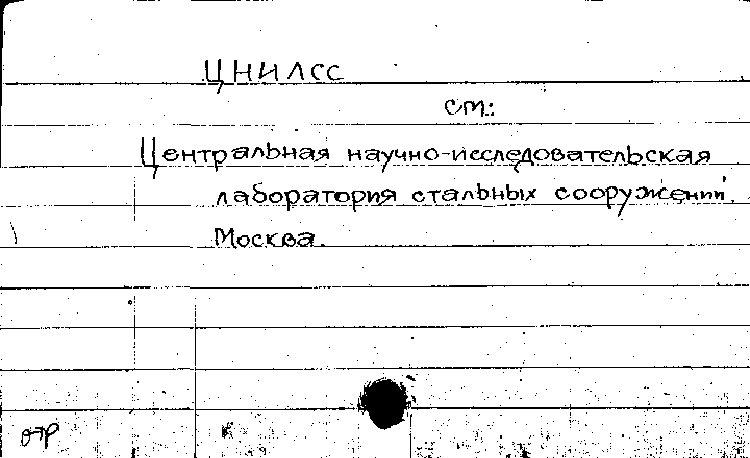 ЦНИЛСС
см.:
Центральная научно-исследовательская
лаборатория стальных сооружений.
Москва.
отр
К